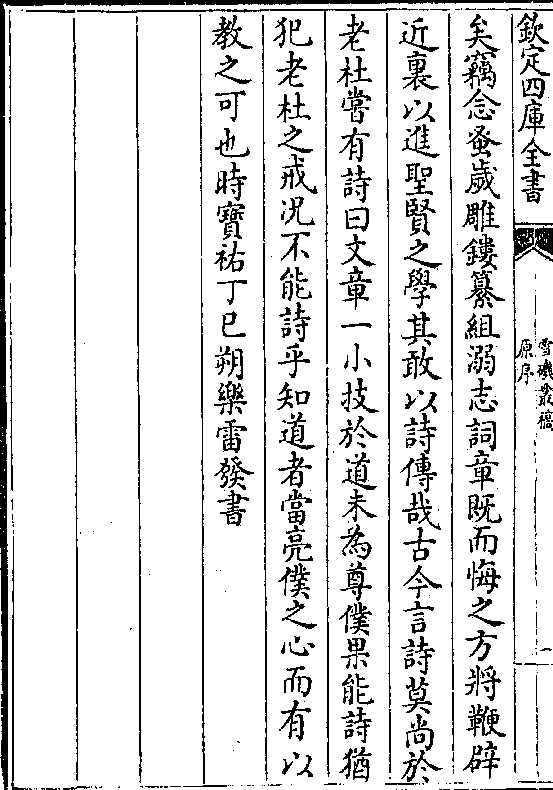 欽定四庫全書
雪磯叢稿
原序
一
矣竊念蚤歲雕鏤纂組溺志詞章既而悔之方將鞭辟
近裏以進聖賢之學其敢以詩傳哉古今言詩莫尚於
老杜嘗有詩曰文章一小技於道未為尊僕果能詩猶
犯老杜之戒况不能詩乎知道者當亮僕之心而有以
教之可也時寶祐丁巳朔樂雷發書